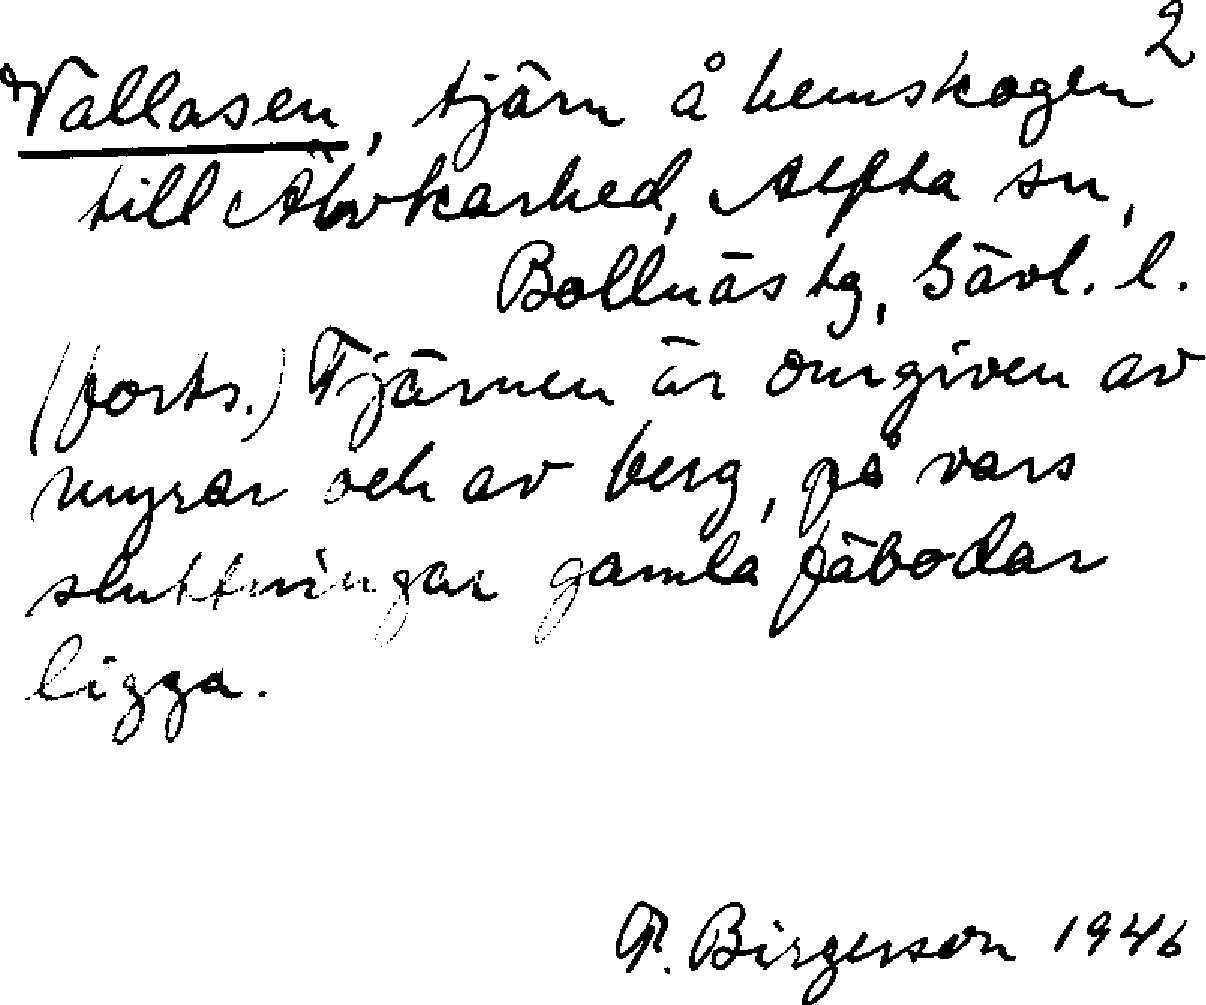 2
Vallasen, tjärn å hemskogen
till Älvkarhed, Alfta sn,
Bollnäs tg, Gävl. l.
(forts.) Tjärnen är omgiven av
myrar och av berg, på vars
sluttningar gamla fäbodar
ligga.
F. Birgerson 1946